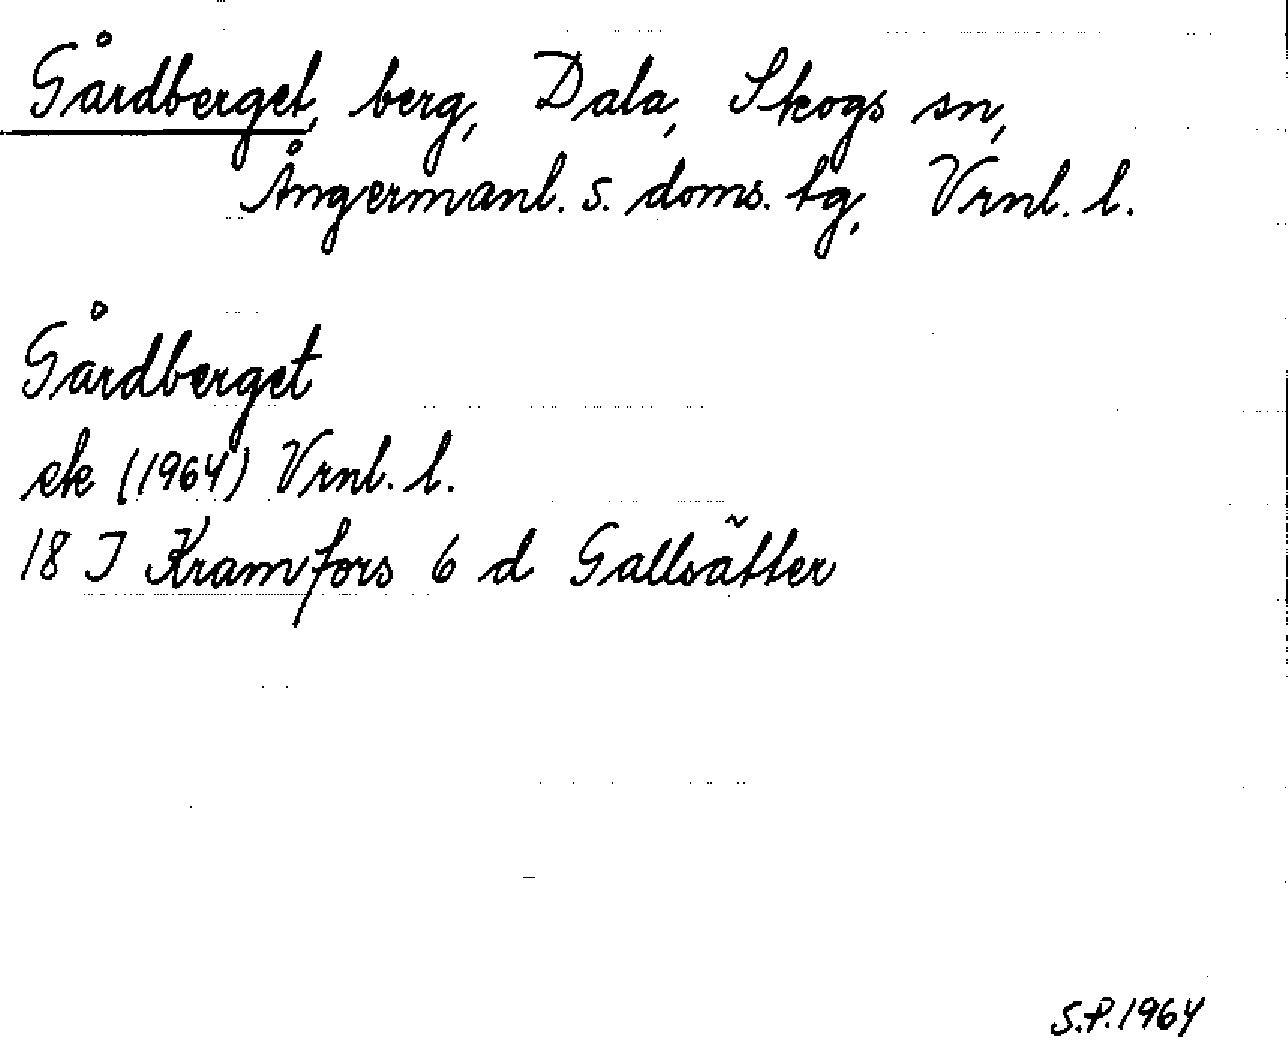 Gårdberget, berg, Dala, Skogs sn,
Ångermanl. s. doms. tg, Vrnl. l.
Gårdberget
ek (1964) Vrnl. l.
18 J Kramfors 6 d Gallsätter
S.P. 1964